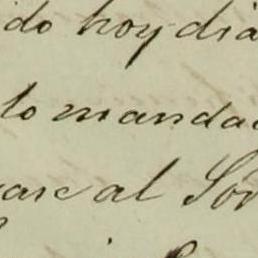 do hoy dia
lo manda
ase al Sor